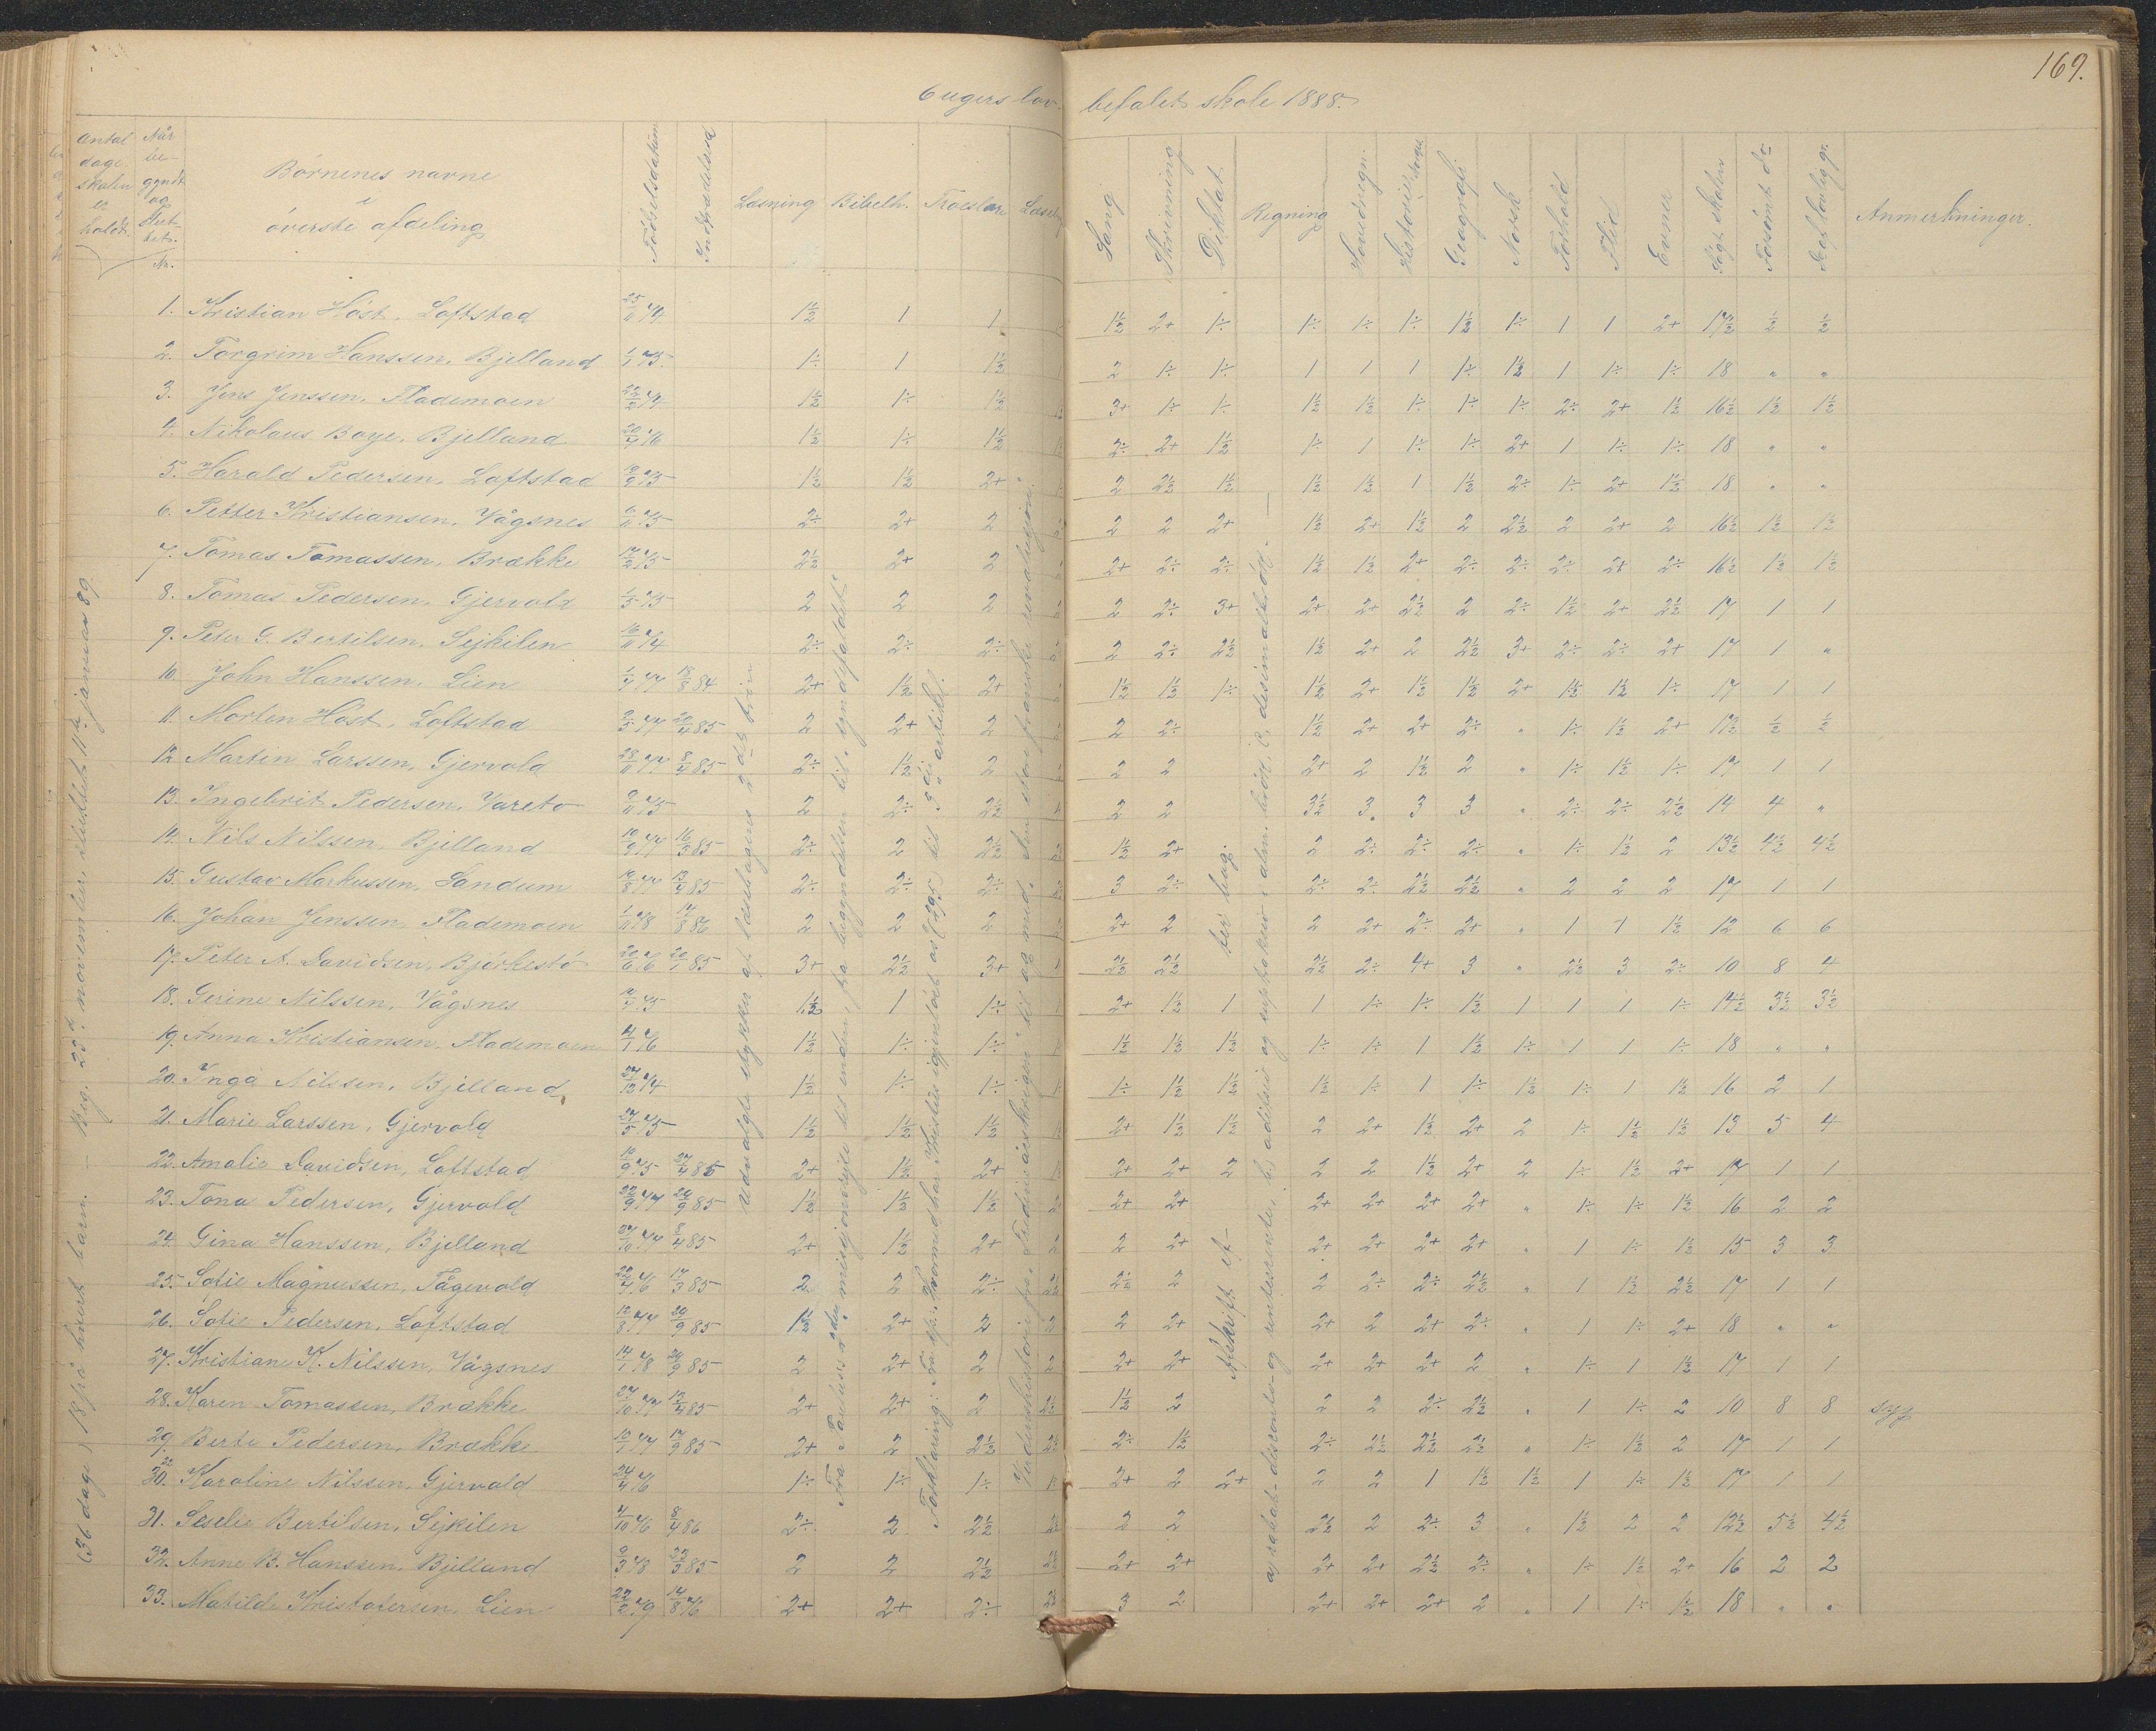 169.
6 ugers lov- befalet skole 1888.
Antal dage skolen er holdt. Når be- gyndt og slut- tet. Nr. Børnenes navne i øverste afdeling Fødselsdatum Indtrædelsesd Læsning Bibelh. Troeslære Sang Skrivning Diktat Regning Hovedregn. Historie Geografi Norsk Forhold Flid Evner Søgt skolen Forsømt do Anmerkninger.
1. Kristian Høst, Loftstad 25/11 74 1½ 1 1 1½ 2+ 1÷ 1÷ 1÷ 1÷ 1½ 1÷ 1 1 2+ 17½ ½ ½
2. Torgrim Hanssen, Bjelland 1/1 75 1÷ 1 1½ 2 1÷ 1÷ 1 1 1 1÷ 1½ 1 1÷ 1÷ 18 " "
3. Jens Jenssen, Flademoen 1½ 1÷ 1½ 3+ 1÷ 1÷ 1½ 1½ 1÷ 1÷ 1÷ 2÷ 2+ 1½ 16½ 1½ 1½
4. Nikolaus Boye, Bjelland 20/4 76 1½ 1÷ 1½ 2÷ 2+ 1½ 1÷ 1 1÷ 1÷ 2+ 1 1÷ 1÷ 18 " "
5. Harald Pedersen, Loftstad 1½ 1½ 2+ 2 2½ 1½ 1½ 1½ 1 1½ 2÷ 1÷ 2+ 1½ 18 " "
6. Petter Kristiansen, Vågsnes 2÷ 2+ 2 2 2 2+ 1½ 2+ 1½ 2 2½ 2 2+ 2 16½ 1½ 1½
7. Tomas Tomassen, Brække 2½ 2+ 2 2+ 2÷ 2÷ 1½ 1½ 2+ 2÷ 2÷ 2÷ 2+ 2÷ 16½ 1½ 1½
8. Tomas Pedersen, Gjervold 1/5 75 2 2 2 2 2÷ 3+ 2+ 2+ 2½ 2 2÷ 1½ 2+ 2½ 17 1 1
9. Peter G. Bertilsen, Sejkilen 16/11 74 2÷ 2÷ 2÷ 2 2÷ 2½ 1½ 2+ 2 2½ 3+ 2÷ 2÷ 2+ 17 1 "
10. John Hanssen, Lien 18/8 84 2+ 1½ 2+ 1½ 1½ 1÷ 1½ 2+ 1½ 1½ 2+ 1½ 1½ 1÷ 17 1 1
11. Morten Høst, Loftstad 20/4 85 2 2+ 2 2 2÷ 1½ 2+ 2+ 2÷ " 1÷ 1½ 2+ 17½ ½ ½
12. Martin Larssen, Gjervold 28/11 77 8/4 85 2÷ 1½ 2 2 2 2+ 2 1½ 2 " 1÷ 1½ 1÷ 17 1 1
13. Ingebrit Pedersen, Vareto 2 2÷ 2½ 2 2 3½ 3 3 3 " 2÷ 2÷ 2½ 14 4 "
14. Nils Nilssen, Bjelland 16/3 85 2÷ 2 2½ 1½ 2+ 2 2÷ 2÷ 2÷ " 1÷ 1½ 2 13½ 4½ 4½
15. Gustav Markussen, Sandum 2÷ 2÷ 2÷ 3 2÷ 2÷ 2÷ 2½ 2½ " 2 2 2 17 1 1
16. Johan Jenssen, Flademoen 1/11 78 2 2 2 2+ 2 2 2+ 2÷ 2+ " 1 1 1½ 12 6 6
17. Peter A. Davidsen, Bjørkestø 20/6 76 20/1 85 3+ 2½ 3+ 2½ 2½ 2½ 2÷ 4+ 3 " 2½ 3 2÷ 10 8 4
18. Gerine Nilssen, Vågsnes 1½ 1 1÷ 2+ 1½ 1 1 1÷ 1÷ 1½ 1 1 1 1÷ 14½ 3½ 3½
19. Anna Kristiansen, Flademoen 4/1 76 1½ 1÷ 1÷ 1½ 1½ 1½ 1÷ 1÷ 1 1½ 1÷ 1 1 1÷ 18 " "
20. Inga Nilssen, Bjelland 27/12 74 1½ 1÷ 1÷ 1÷ 1½ 1½ 1½ 1÷ 1 1÷ 1½ 1÷ 1 1½ 16 2 1
21. Marie Larssen, Gjervold 1½ 1½ 1½ 2+ 1½ 1½ 2 2+ 1½ 2+ 2 1÷ 1½ 1½ 13 5 4
22. Amalie Davidsen, Loftstad 10/9 75 27/4 85 2+ 1½ 2+ 2+ 2+ 2 2 2 1½ 2+ 2 1÷ 1½ 2+ 17 1 1
23. Tona Pedersen, Gjervold 22/9 77 29/9 85 1½ 1½ 1½ 2+ 2+ 2+ 2+ 2+ 2+ " 1÷ 1÷ 1½ 16 2 2
24. Gina Hanssen, Bjelland 27/10 77 8/4 85 2+ 1½ 2+ 2 2+ 2+ 2+ 2+ 2+ " 1 1÷ 1½ 15 3 3
25. Sofie Magnussen, Tågevold 22/4 76 17/3 85 2 2 2÷ 2½ 2 2 2÷ 2÷ 2½ " 1 1½ 2½ 17 1 1
26. Sofie Pedersen, Loftstad 12/8 77 29/9 85 1½ 2+ 2 2 2+ 2+ 2 2+ 2÷ " 1 1÷ 2+ 18 " "
27. Kristiane K. Nilssen, Vågsnes 14/1 78 29/9 85 2 2+ 2 2+ 2+ 2+ 2+ 2+ 2 " 1÷ 1 1½ 17 1 1
28. Karen Tomassen, Brække 27/10 77 13/4 85 2+ 2+ 2 1½ 2 2 2 2÷ 2½ " 1 1÷ 2 10 8 8 syg
29. Berte Pedersen, Brække 2+ 2 2½ 2÷ 1½ 2÷ 2½ 2½ 2½ " 1÷ 1½ 2 17 1 1
30. Karoline Nilssen, Gjervold 24/4 76 1÷ 1÷ 1÷ 2+ 2 2+ 2 2 1 1½ 1½ 1 1÷ 1½ 17 1 1
31. Seselie Bertilsen, Sejkilen 4/10 76 2÷ 2 2½ 2 2 2½ 2 2÷ 3 " 1½ 2 2 12½ 5½ 4½
32. Anne B. Hanssen, Bjelland 9/3 78 23/3 85 2 2 2½ 2+ 2+ 2+ 2+ 2½ 2÷ " 1÷ 1½ 2+ 16 2 2
33. Matilde Kristofersen, Lien 22/2 79 14/8 76 2+ 2+ 2÷ 3 2 2+ 2+ 2+ 2 " 1 1÷ 1½ 18 " "
(36 dage) 18 på hvert barn. — Beg. 23d november, sluttet 11te januar 89.
Udvalgte stykker af læsebogens 2det trin
Fra Paulus's 2den misjonsrejse til enden, fra begyndelsen til "syndefaldet"
Forklaring: Fra sp: Hvormed har Kristus igjenløst os (295) til 3die artikl.
Verdenshistorie fra "Trediveårskrigen" til og med "Den store franske revolusjon."
Afskrift ef- ter bog.
a, rabat- disconto- og rentesrente, b, adition og suptaksion i alm. brøk, c, desimalbrøk. —